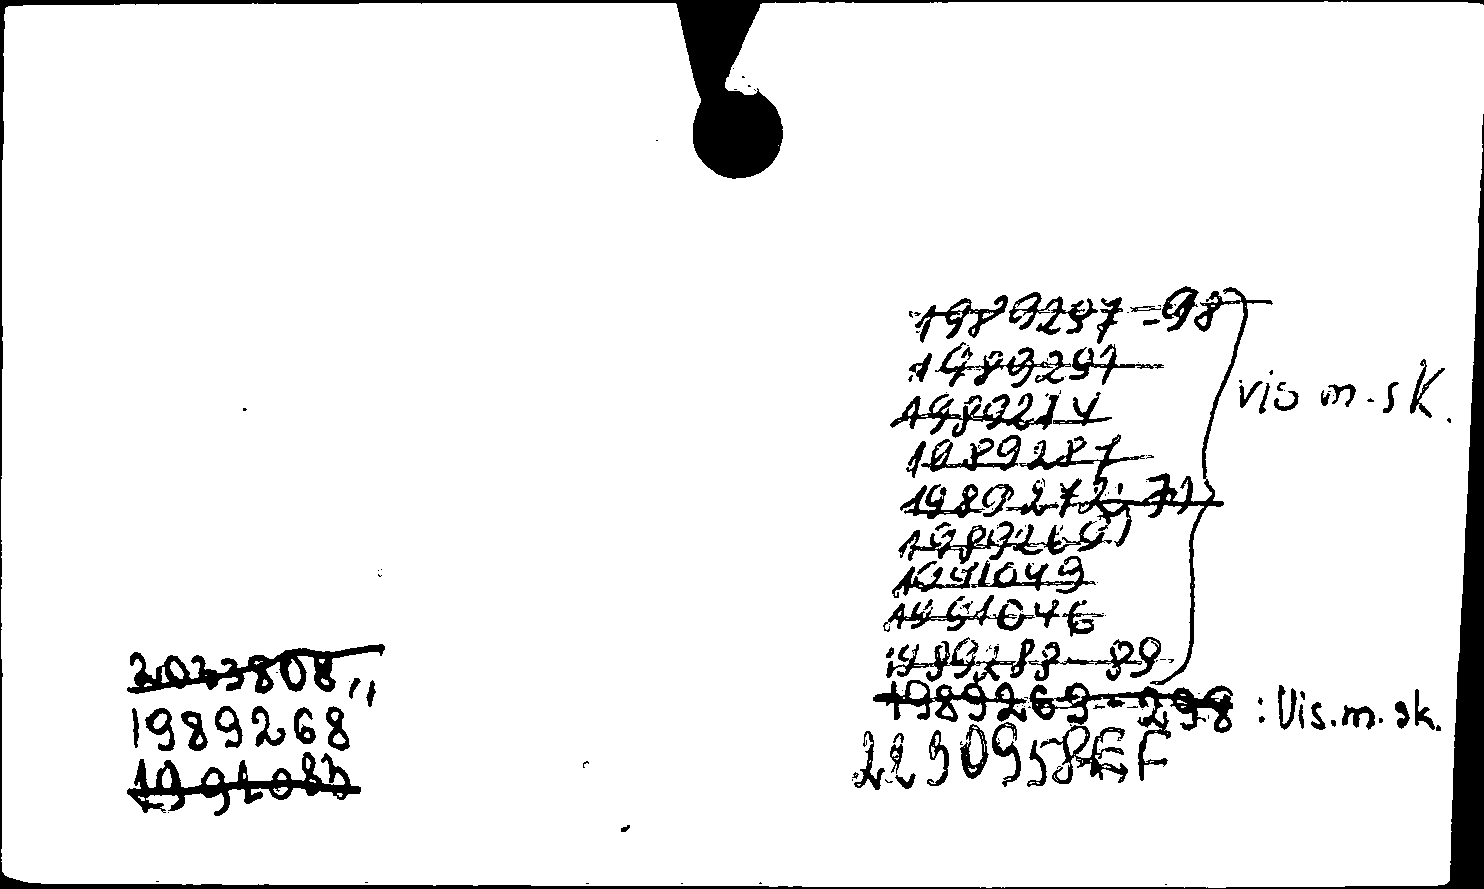 1989297-98
1989291
vis m.sk.
1989274
1989287
1989272; 71
1989269
1991049
1991046
1989288-89
1989269-298 : Vis.m.sk.
2290958EF
2033808,,
1989268